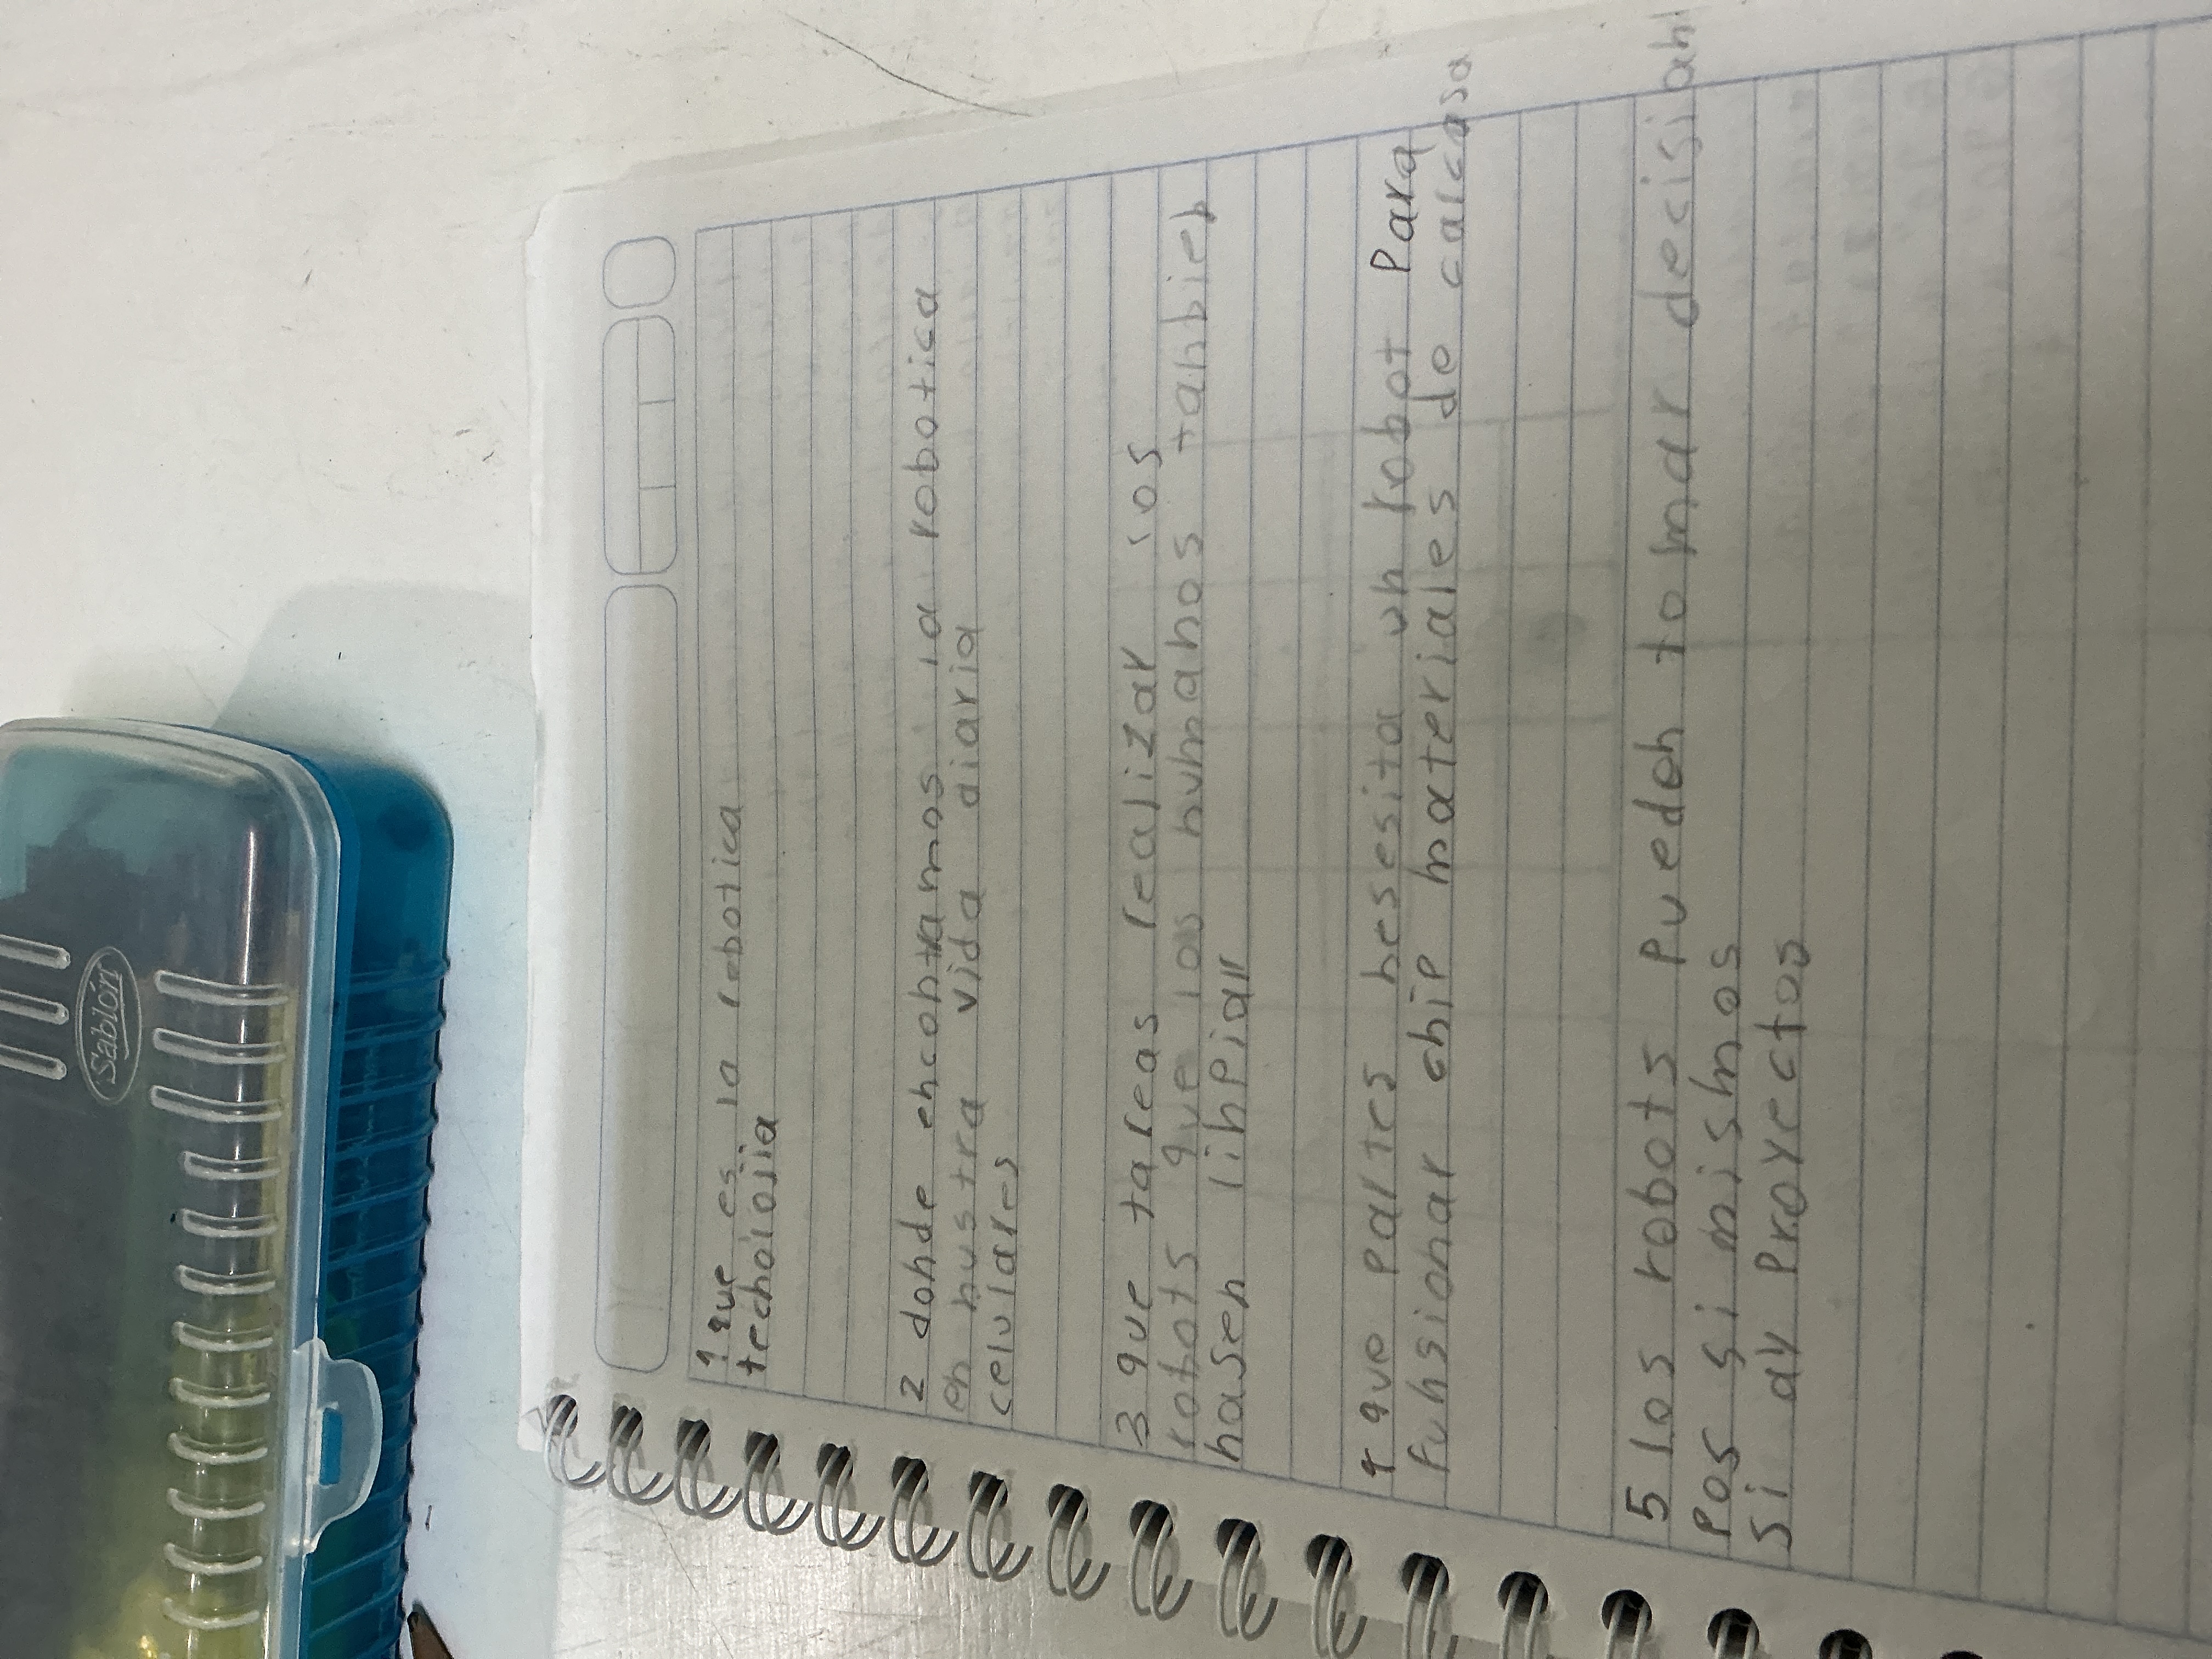 1 que es la robotica
techoloiia
2 donde encontramos la robotica
en nustra vida diaria
celulares
3 que tareas realizar los
robots que los huhmanos tanbien
hasen linpiar
4 que partes nesesita un robot para
funsionar chip materiales de calcasa
5 los robots pueden tomar decisi
pos si mismos
si ay proyectos
Sablón